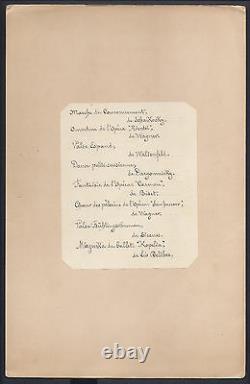 Marche du Couronnement,
de
Ouverture de l'Opéra
de Wagner.
Valse Espana,
de Waldteufel.
Danse petite-russienne,
de
Fantaisie de l'Opéra "Carmen"
de Bizet.
Chœur des pèlerins de l'Opéra
de Wagner.
Valse
de Strauss.
Mazurka du ballet "Kopelia"
de Léo Delibes.